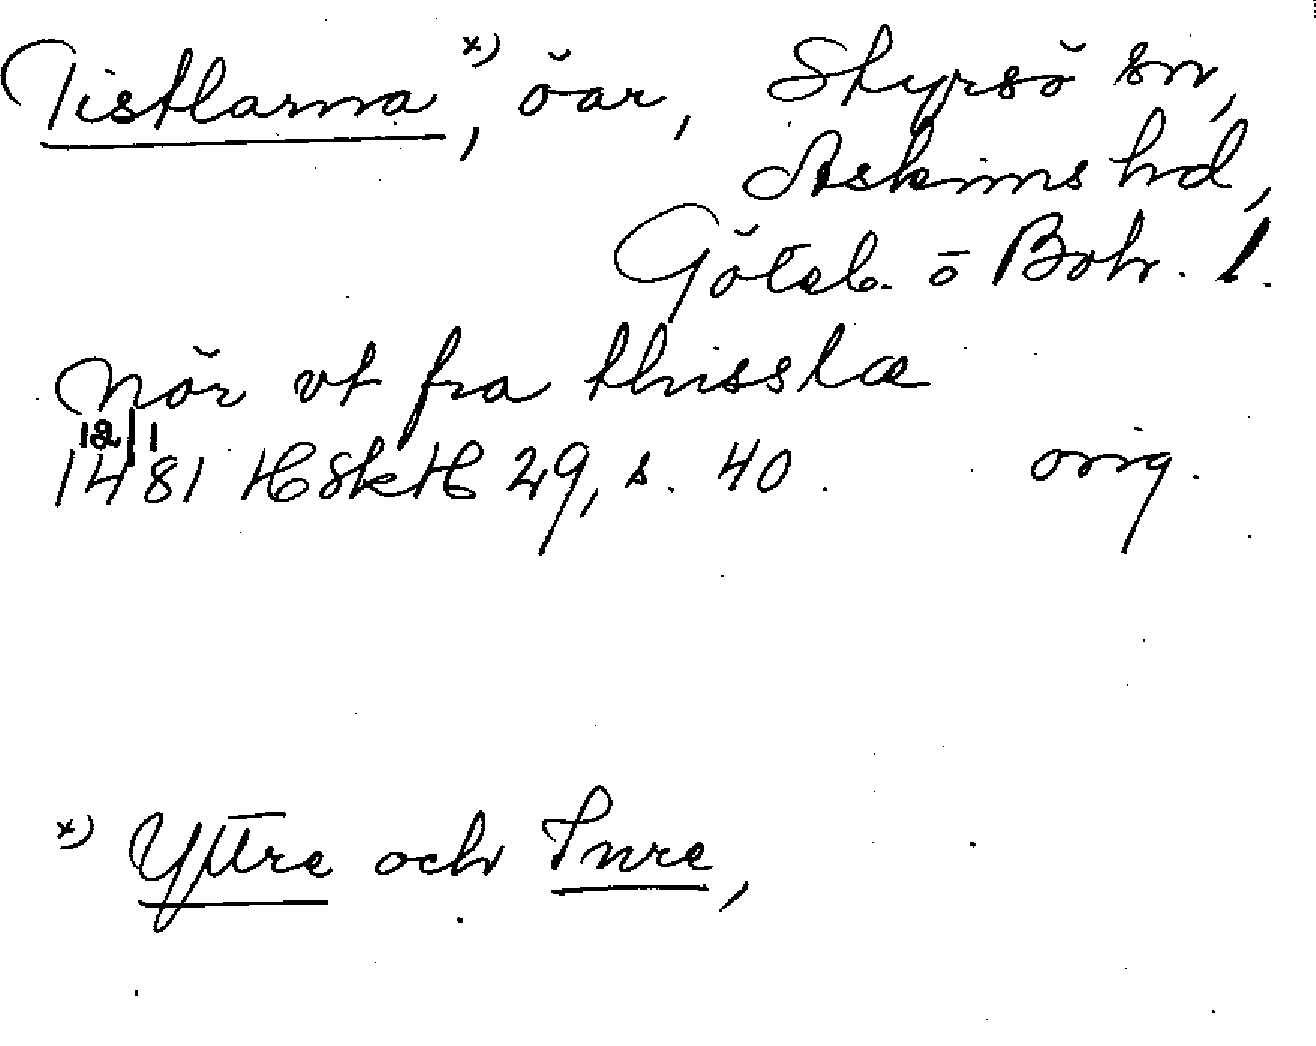 Tistlarna x), öar, Styrsö sn,
Askims hd,
Göteb. o Boh. l.
Nör vt fra thisslæ
12/1
1481 HSkH 29, s. 40. orig.
x) Yttre och Inre,